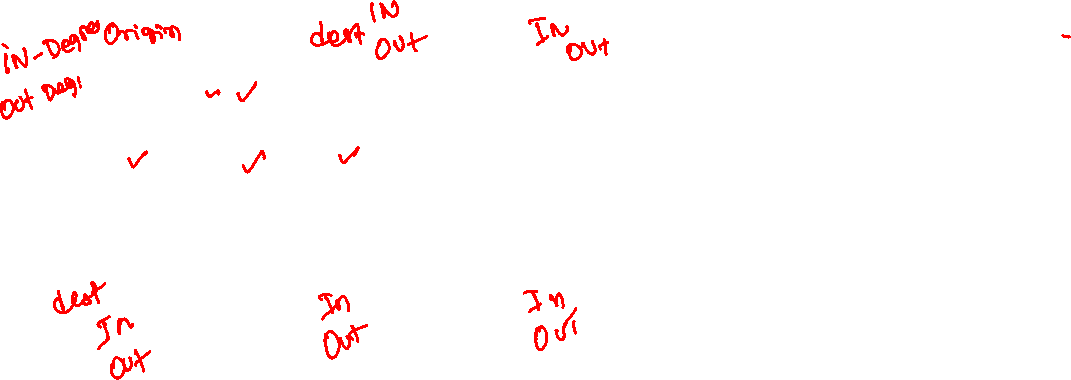 iN-Degree Origin
Out Deg.
dest IN
OUT
IN
OUT
dest
In
Out
In
Out
In
Out